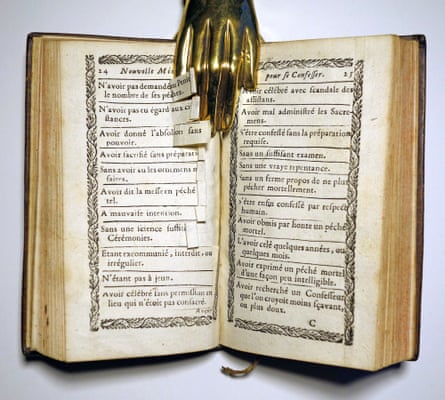 24 Nouvelle
N'avoir pas demandé au Penit
le nombre de ses péchés.
N'avoir pas eu égard aux
stances.
Avoir donné l'absolution sans
pouvoir.
Avoir sacrifié sans préparati
Sans avoir
faires.
Avoir dit la messe en péché
tel.
A mauvaise intention.
Sans une science suffi
Cérémonies.
Etant excommunié, interdit, ou
irrégulier.
N'étant pas à jeun.
Avoir célébré sans permission en
lieu qui n'étoit pas consacré.
Avoir
pour se Confesser. 25
Avoir célébré avec scandale des
assistans.
Avoir mal administré les Sacre-
mens.
S'être confessé sans la préparation
requise.
Sans un suffisant examen.
Sans une vraye repentance.
Sans un ferme propos de ne plus
pécher mortellement.
S'être confessé par respect
humain.
Avoir obmis par honte un péché
mortel.
L'avoir celé quelques années, ou
quelques mois.
Avoir exprimé un péché mortel
d'une façon peu intelligible.
Avoir recherché un Confesseur
que l'on croyoit moins sçavant,
ou plus doux.
C